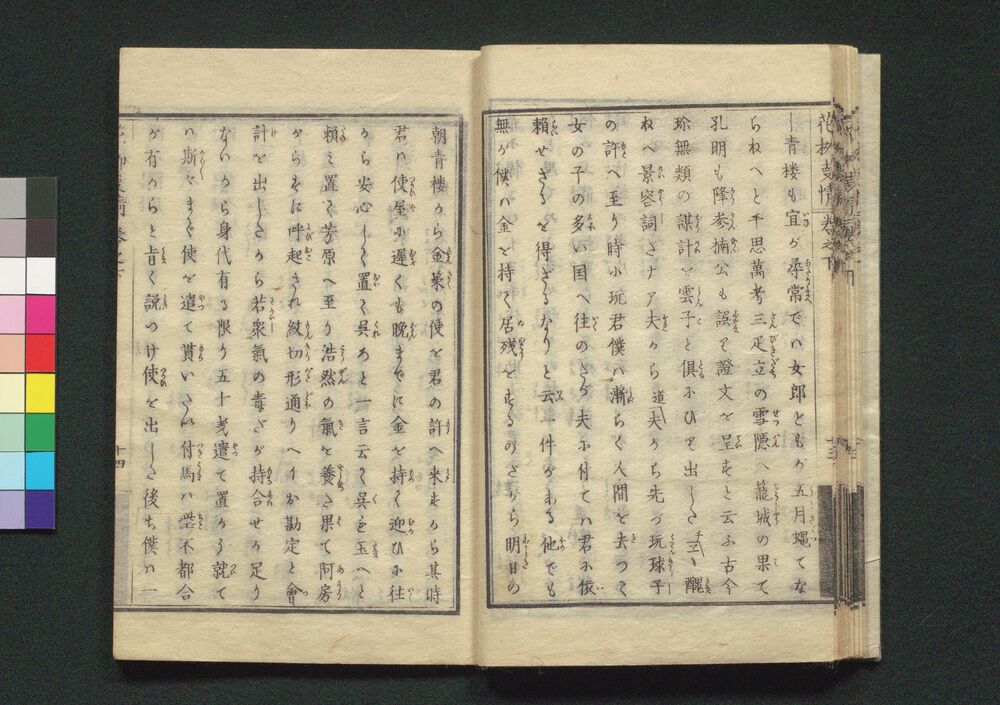 し青楼も宜が尋常でハ女郎ともが五月蝿てな
らねへと千思萬考三疋立の雪隠へ籠城の果て
孔明も降参楠公も誤り證文を呈すと云ふ古今
珍無類の謀計を雲子と倶にひり出した
ねへ景容詞さナア夫から道夫から先づ玩球子
の許へ至り時に玩君僕ハ漸ちく人間を去つて
女の子の多い国へ往のさ夫に付てハ君に依
頼せざるを得ざるなりと云一件がある他でも
無が僕ハ金を持て居残をするのだから明日の
朝青楼から金策の使を君の許へ来すから其時
君ハ使屋に遅くも晩までに金を持て迎ひに往
から安心して置て呉ろと一言云て呉を玉へと
頼ミ置て芳原へ至り浩然の氣を養た果て阿房
がらすに呼起され紋切形通りヘイお勘定と會
計を出したから若衆氣の毒だが持合せが足り
ないから身代有る限り五十銭遣て置から就て
ハ斯々まで使を遣て貰いたい付馬ハ些不都合
が有からと旨く説つけ使を出した後ち僕ハ一